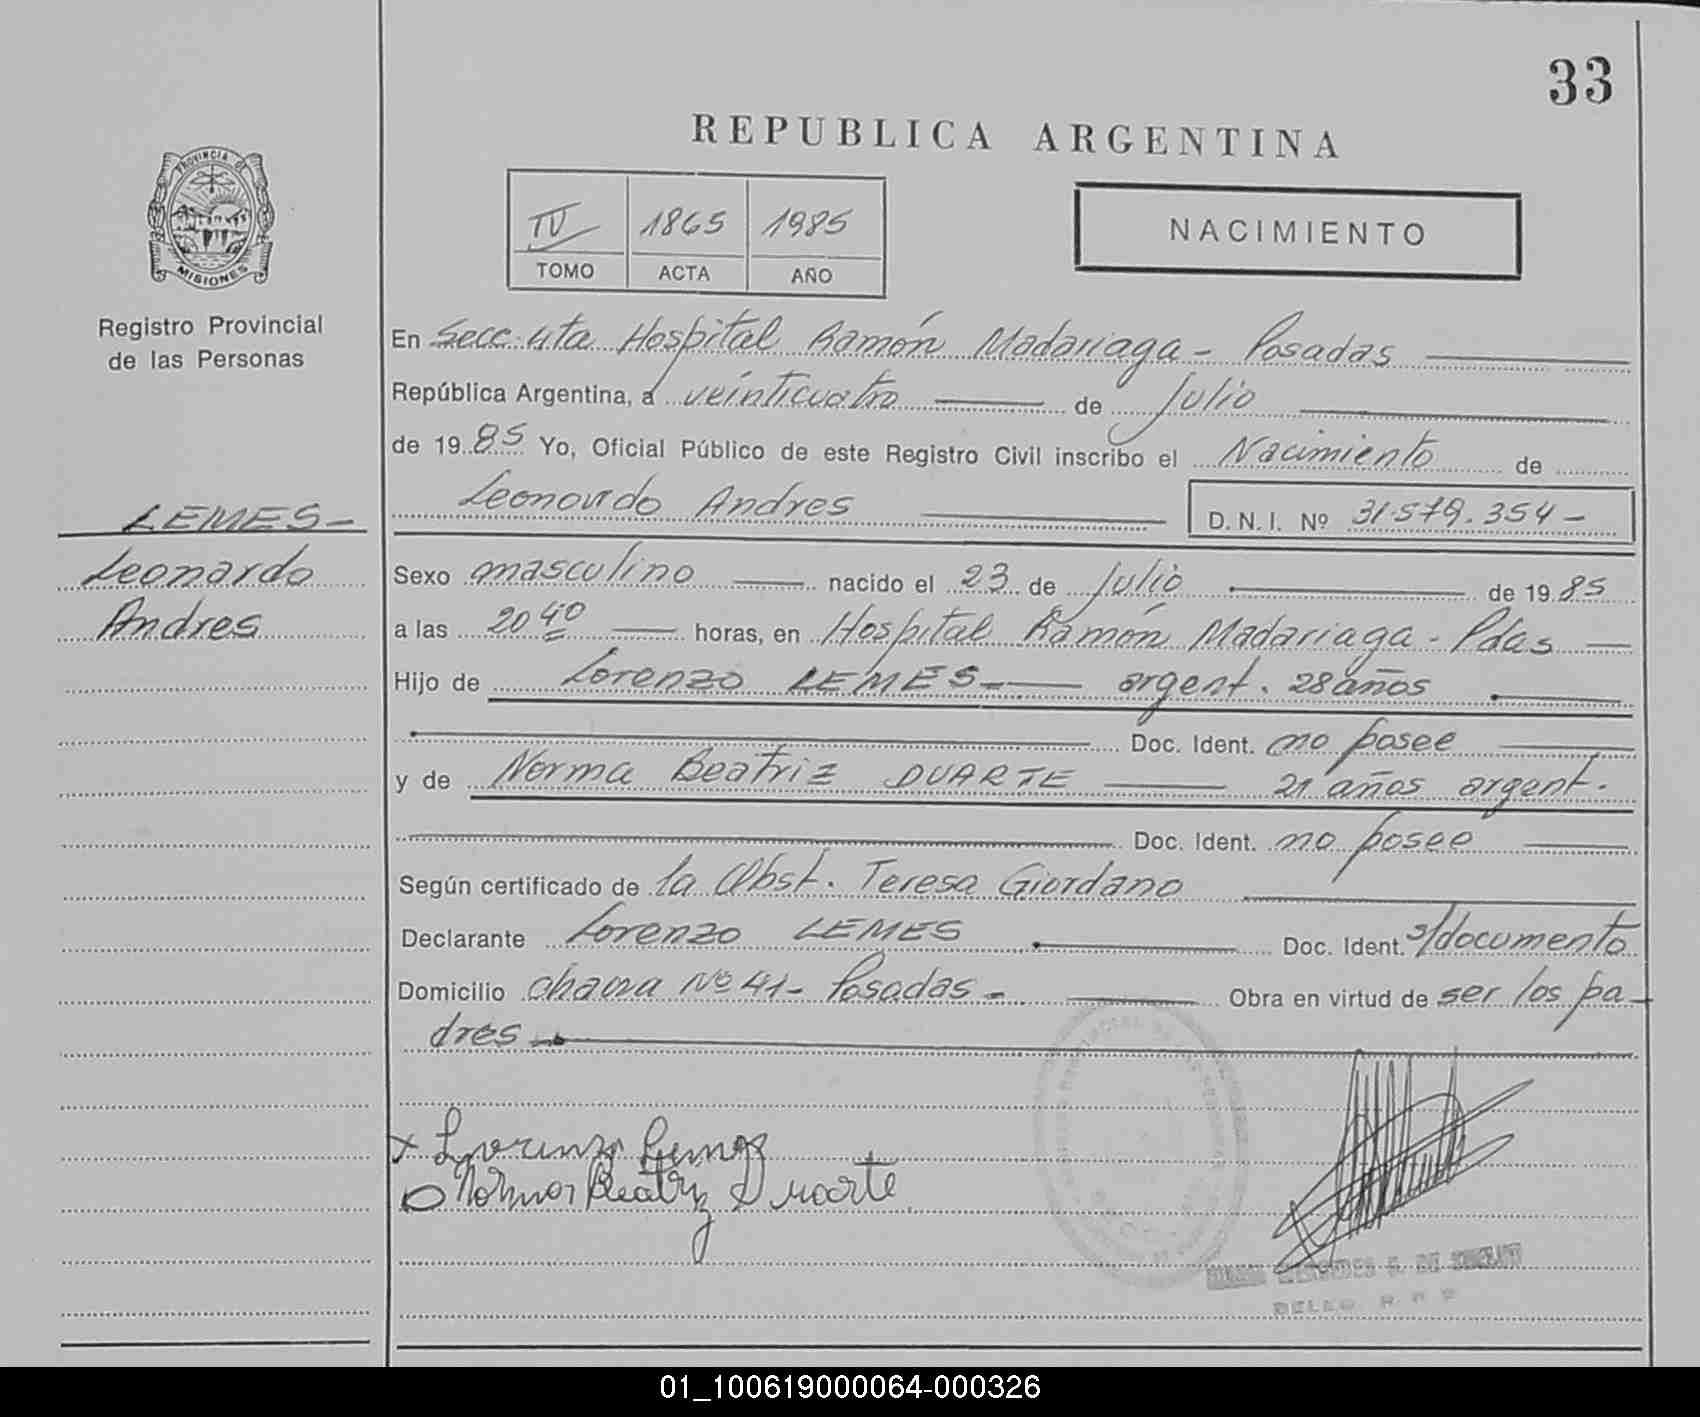 33
REPUBLICA ARGENTINA
PROVINCIA DE
MISIONES
Registro Provincial
de las Personas
IV 1865 1985
TOMO ACTA AÑO
NACIMIENTO
En Secc. 4ta Hospital Ramón Madariaga - Posadas
República Argentina, a veinticuatro de Julio
de 1985 Yo, Oficial Público de este Registro Civil inscribo el Nacimiento de
Leonardo Andres D.N.I. Nº 31.579.354-
LEMES-
Leonardo
Andres
Sexo masculino nacido el 23 de Julio de 1985
a las 20 40 horas, en Hospital Ramón Madariaga - Pdas
Hijo de Lorenzo LEMES- argent. 28 años
Doc. Ident. no posee
y de Norma Beatriz DUARTE 21 años argent.
Doc. Ident. no posee
Según certificado de la Obst. Teresa Giordano
Declarante Lorenzo LEMES Doc. Ident. s/documento
Domicilio chacra Nº 41- Posadas- Obra en virtud de ser los pa-
dres
x Lorenzo Lemes
Norma Beatriz Duarte
01_100619000064-000326